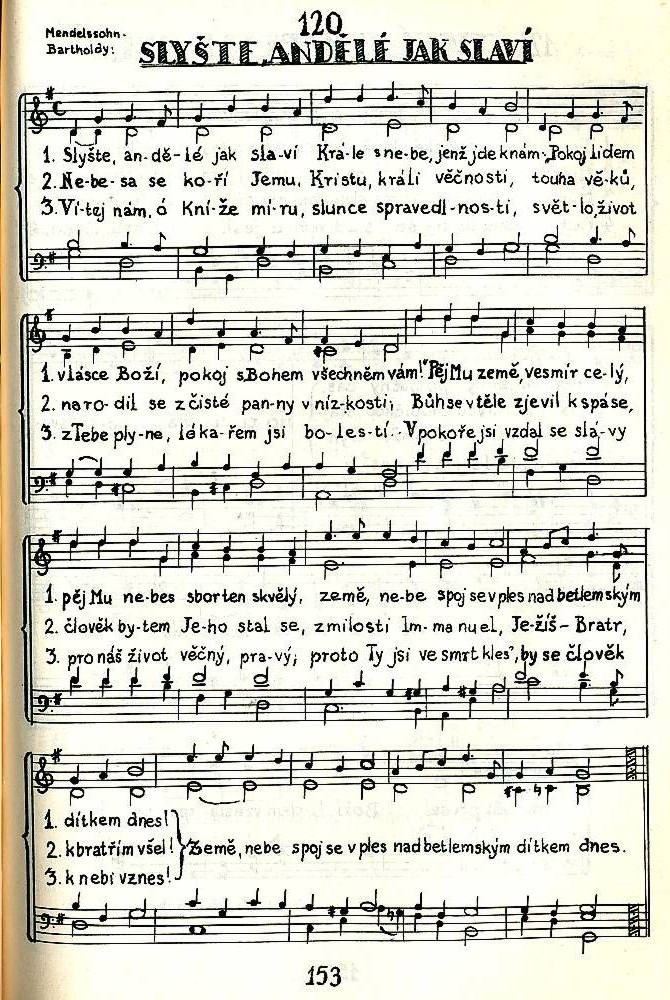 120
Mendelssohn-
Bartholdy:
SLYŠTE, ANDĚLÉ JAK SLAVÍ
1. Slyšte, an-dě-lé jak sla-ví Krá-le s ne-be, jenž jde k nám: „Pokoj lidem
2. Ne-be-sa se ko-ří Jemu, Kristu, králi věčnosti, touha vě-ků,
3. Ví-tej nám, ó Kní-že mí-ru, slunce spravedl-nos-ti, svět-lo, život
1. v lásce Boží, pokoj s Bohem všechněm vám!" Pěj Mu země, vesmír ce-lý,
2. naro-dil se z čisté pan-ny v níz-kosti, Bůh se v těle zjevil k spáse,
3. z Tebe ply-ne, léka-řem jsi bo-les-tí. V pokoře jsi vzdal se slá-vy
1. pěj Mu ne-bes sbor ten skvělý, země, ne-be spoj se v ples nad betlemským
2. člověk by-tem Je-ho stal se, z milosti Im-ma nu el, Je-žíš- Bratr,
3. pro náš život věčný, pra-vý; proto Ty jsi ve smrt kles', by se člověk
1. dítkem dnes!
2. k bratřím všel! Země, nebe spoj se v ples nad betlemským dítkem dnes.
3. k nebi vznes!
153